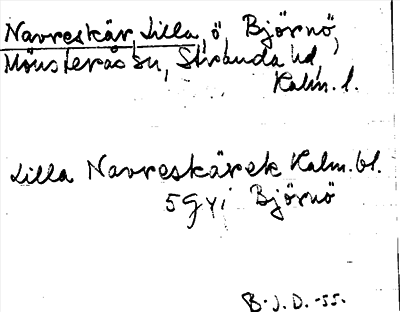 Navreskär, Lilla, ö, Björnö,
Mönsterås sn, Stranda hd,
Kalm. l.
Lilla Navreskär ek Kalm. bl.
5 g y i Björnö
B. J. D. -55.